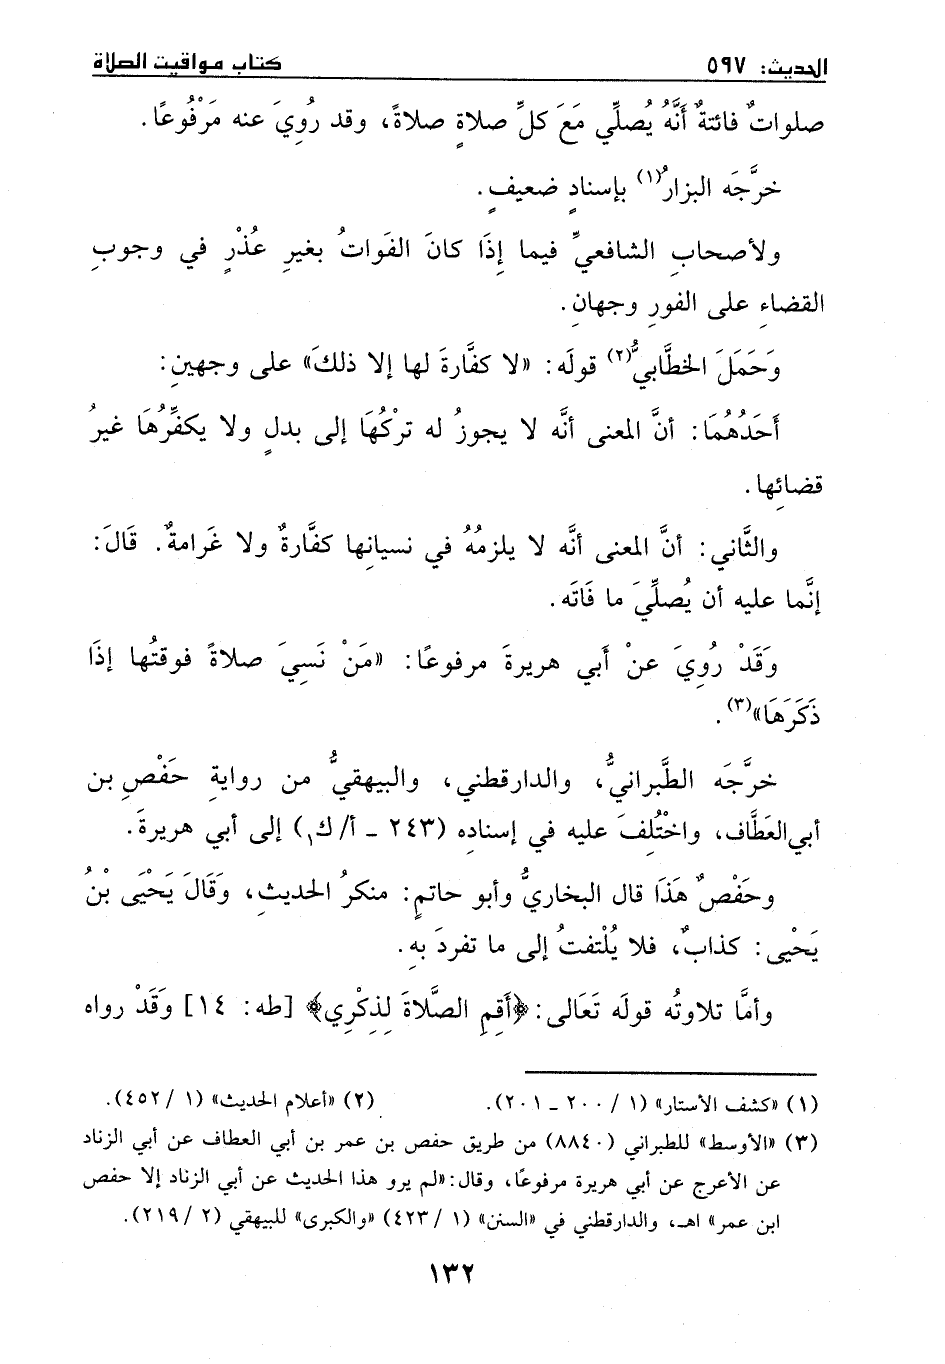 الحديث: ٥٩٧ كتاب مواقيت الصلاة
صلواتٌ فائتةٌ أنَّهُ يُصلِّي مَعَ كلِّ صلاةٍ صلاةً، وقد رُوِيَ عنه مَرْفُوعًا.
خرَّجَه البزارُ(١) بإسنادٍ ضعيفٍ.
ولأصحابِ الشافعيِّ فيما إِذَا كانَ الفَواتُ بغيرِ عُذْرٍ في وجوبِ
القضاءِ على الفورِ وجهانِ.
وَحَمَلَ الخطَّابيُّ(٢) قولَه: «لا كفَّارةَ لها إلا ذلكَ» على وجهينِ:
أَحَدُهُمَا: أنَّ المعنى أنَّه لا يجوزُ له ترْكُهَا إلى بدلٍ ولا يكفِّرُهَا غيرُ
قضائِها.
والثَّاني: أنَّ المعنى أنَّه لا يلزمُهُ في نسيانِها كفَّارةٌ ولا غَرامةٌ. قَالَ:
إنَّما عليه أن يُصلِّيَ ما فَاتَه.
وَقَدْ رُوِيَ عنْ أَبي هريرةَ مرفوعًا: «مَنْ نَسِيَ صلاةً فوقتُها إذَا
ذَكَرَهَا»(٣).
خرَّجَه الطَّبرانيُّ، والدارقطني، والبيهقيُّ من روايةِ حَفْصِ بن
أبي العَطَّاف، واخْتُلِفَ عليه في إسنادِه (٢٤٣ - أ/ ك١) إلى أبي هريرةَ.
وحَفْصٌ هَذَا قال البخاريُّ وأبو حاتمٍ: منكرُ الحديثِ، وَقَالَ يَحْيَى بْنُ
يَحْيى: كذابٌ، فلا يُلْتفتُ إلى ما تفردَ بهِ.
وأمَّا تلاوتُه قولَه تَعَالى: ﴿أَقِمِ الصَّلاةَ لِذِكْرِي﴾ [طه: ١٤] وَقَدْ رواه
(١) «كشف الأستار» (١ / ٢٠٠ - ٢٠١). (٢) «أعلام الحديث» (١ / ٤٥٢).
(٣) «الأوسط» للطبراني (٨٨٤٠) من طريق حفص بن عمر بن أبي العطاف عن أبي الزناد
عن الأعرج عن أبي هريرة مرفوعًا، وقال: «لم يرو هذا الحديث عن أبي الزناد إلا حفص
ابن عمر» اهـ، والدارقطني في «السنن» (١ / ٤٢٣) «والكبرى» للبيهقي (٢ / ٢١٩).
١٣٢